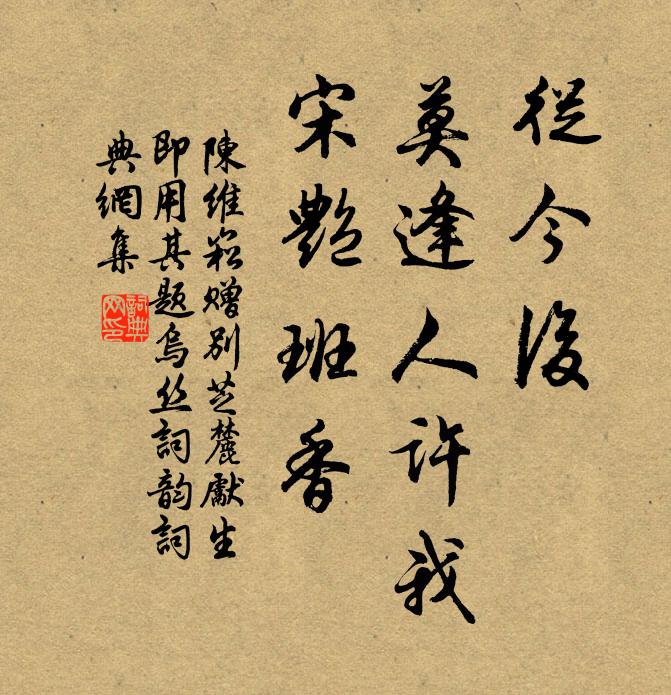 從今後
莫逢人許我
宋艷班香
陳維崧贈別芝麓獻生
即用其題烏丝詞韵詞
典網集
詞典网印